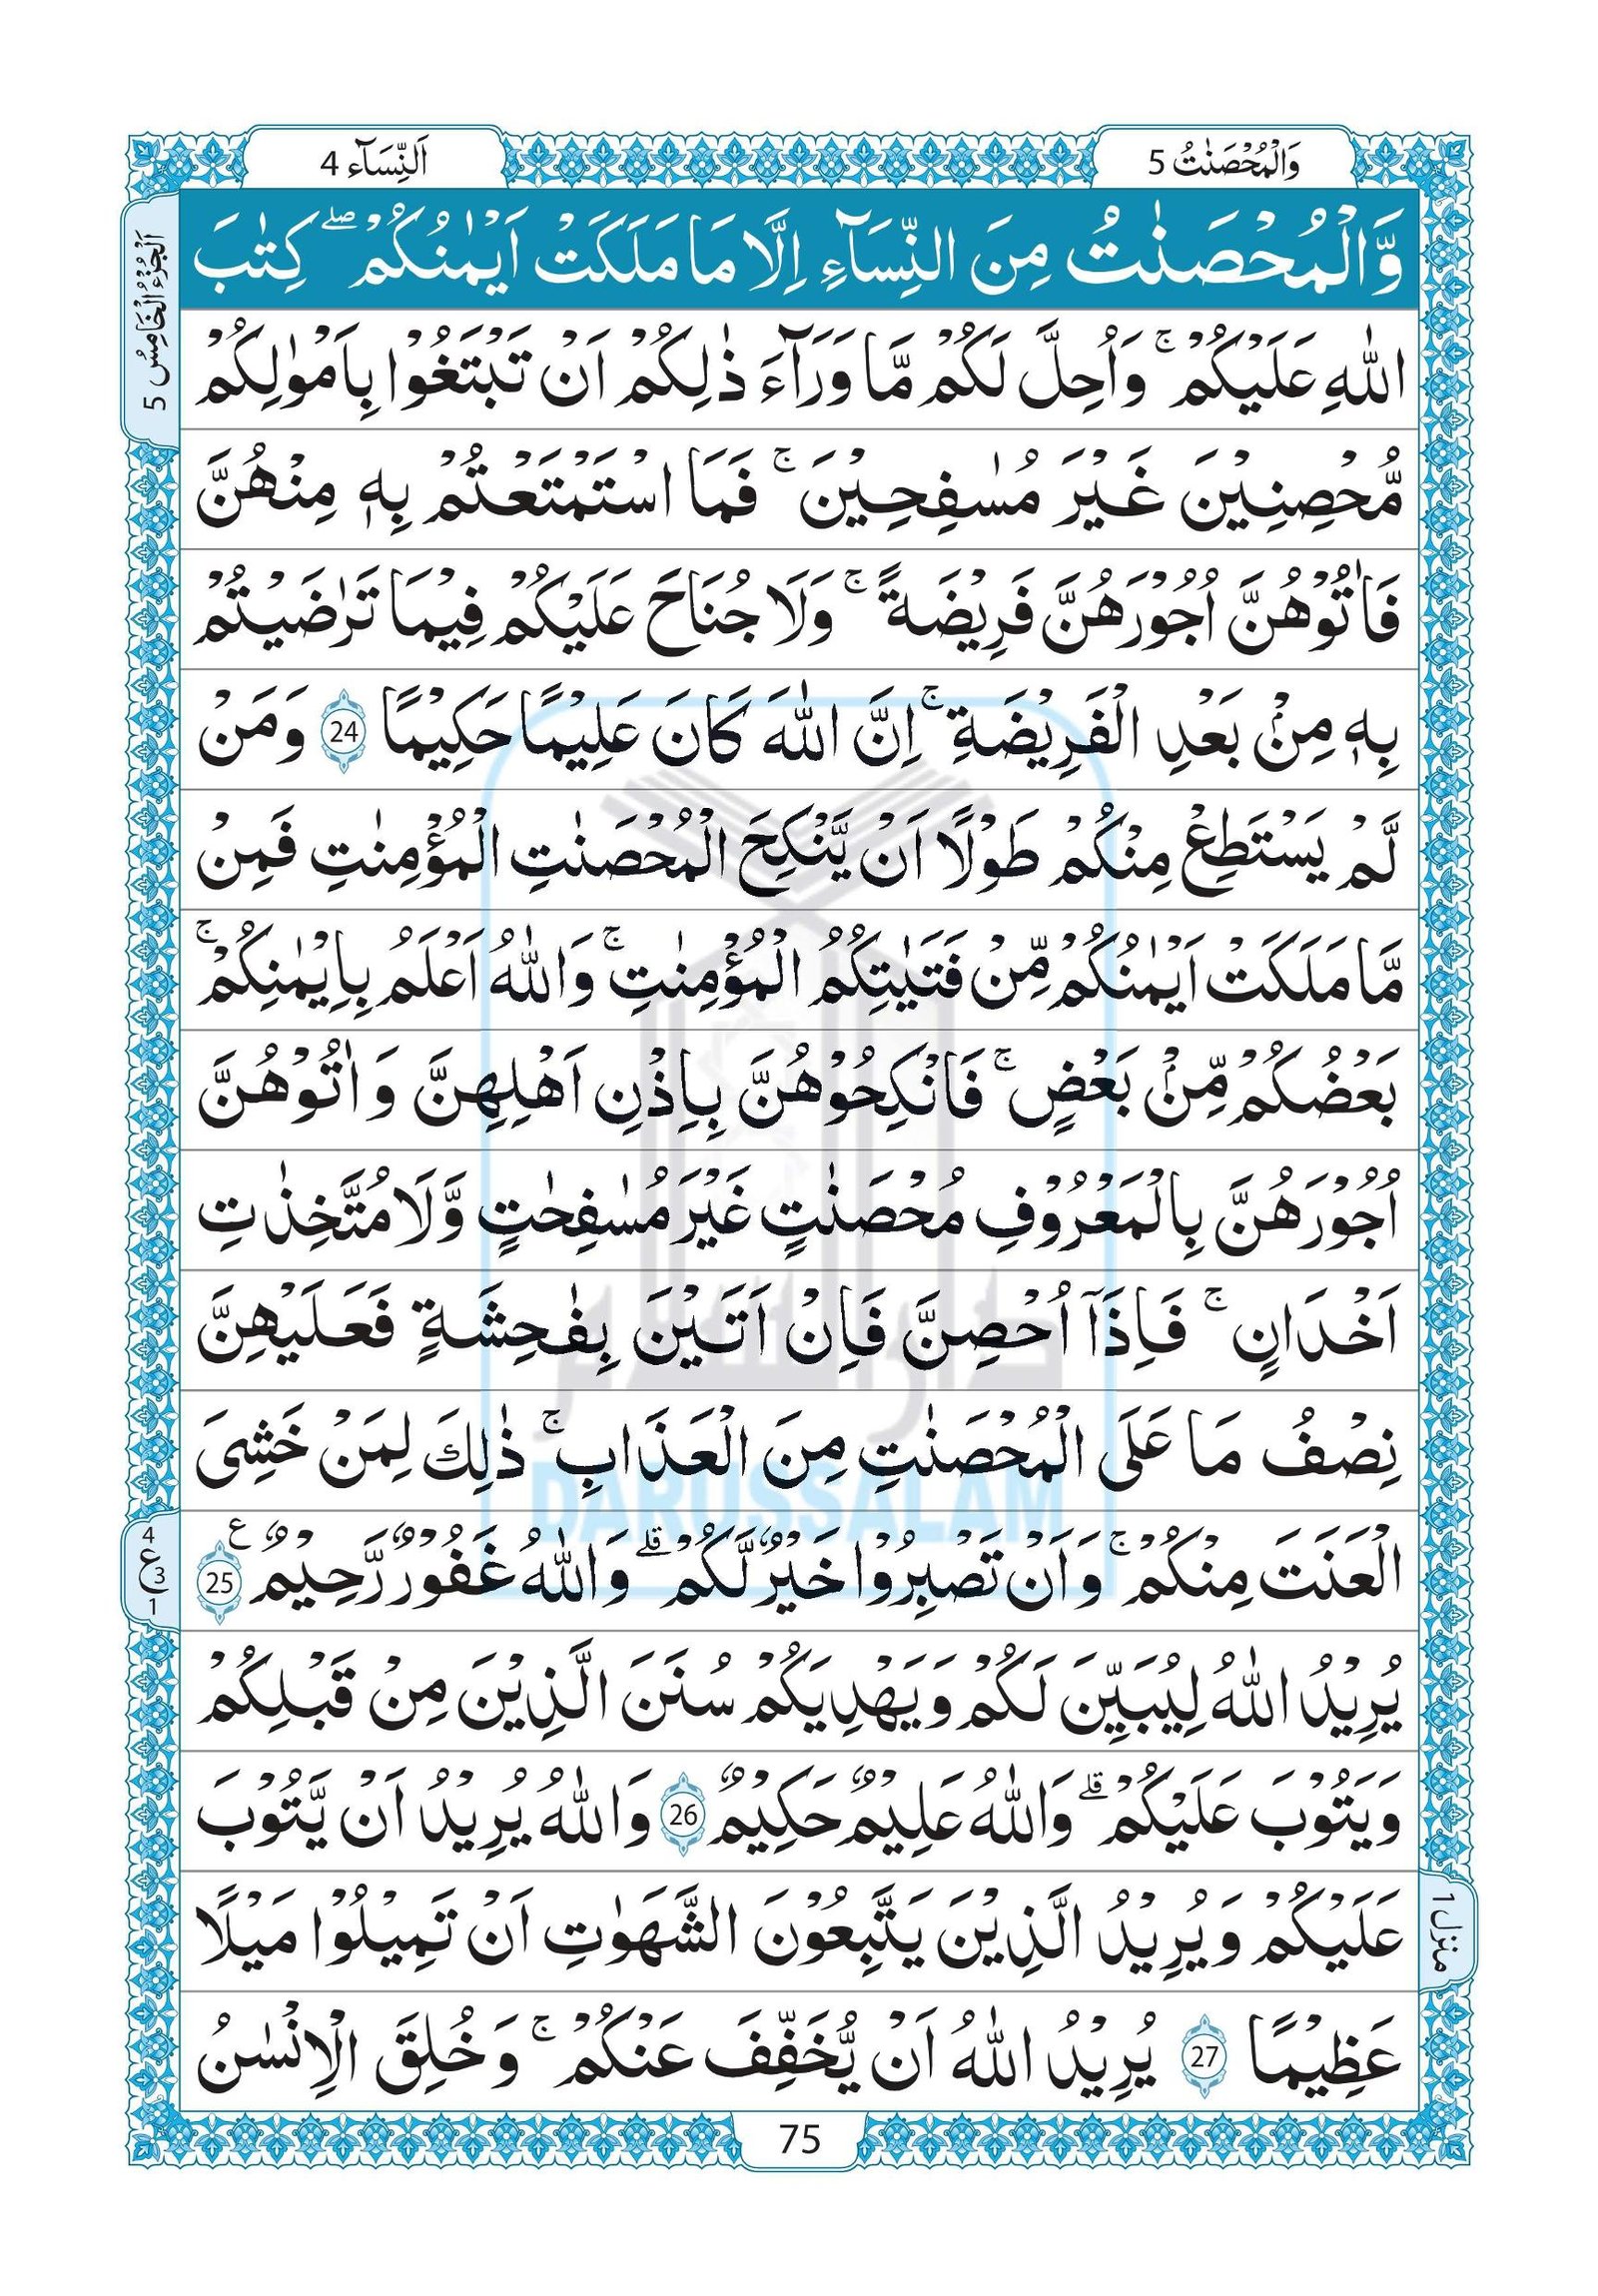 وَالْمُحْصَنٰتُ 5
اَلنِّسَآء 4
وَّالْمُحْصَنٰتُ مِنَ النِّسَآءِ اِلَّا مَا مَلَكَتْ اَيْمٰنُكُمْ ۖ كِتٰبَ
اللّٰهِ عَلَيْكُمْ ۚ وَاُحِلَّ لَكُمْ مَّا وَرَآءَ ذٰلِكُمْ اَنْ تَبْتَغُوْا بِاَمْوٰلِكُمْ
مُّحْصِنِيْنَ غَيْرَ مُسٰفِحِيْنَ ۚ فَمَا اسْتَمْتَعْتُمْ بِهٖ مِنْهُنَّ
فَاٰتُوْهُنَّ اُجُوْرَهُنَّ فَرِيْضَةً ۚ وَلَا جُنَاحَ عَلَيْكُمْ فِيْمَا تَرٰضَيْتُمْ
بِهٖ مِنْۢ بَعْدِ الْفَرِيْضَةِ ۚ اِنَّ اللّٰهَ كَانَ عَلِيْمًا حَكِيْمًا 24 وَمَنْ
لَّمْ يَسْتَطِعْ مِنْكُمْ طَوْلًا اَنْ يَّنْكِحَ الْمُحْصَنٰتِ الْمُؤْمِنٰتِ فَمِنْ
مَّا مَلَكَتْ اَيْمٰنُكُمْ مِّنْ فَتَيٰتِكُمُ الْمُؤْمِنٰتِ ۚ وَاللّٰهُ اَعْلَمُ بِاِيْمٰنِكُمْ ۚ
بَعْضُكُمْ مِّنْۢ بَعْضٍ ۚ فَانْكِحُوْهُنَّ بِاِذْنِ اَهْلِهِنَّ وَاٰتُوْهُنَّ
اُجُوْرَهُنَّ بِالْمَعْرُوْفِ مُحْصَنٰتٍ غَيْرَ مُسٰفِحٰتٍ وَّلَا مُتَّخِذٰتِ
اَخْدَانٍ ۚ فَاِذَآ اُحْصِنَّ فَاِنْ اَتَيْنَ بِفٰحِشَةٍ فَعَلَيْهِنَّ
نِصْفُ مَا عَلَى الْمُحْصَنٰتِ مِنَ الْعَذَابِ ۚ ذٰلِكَ لِمَنْ خَشِىَ
الْعَنَتَ مِنْكُمْ ۚ وَاَنْ تَصْبِرُوْا خَيْرٌ لَّكُمْ ۗ وَاللّٰهُ غَفُوْرٌ رَّحِيْمٌ 25 ع
يُرِيْدُ اللّٰهُ لِيُبَيِّنَ لَكُمْ وَيَهْدِيَكُمْ سُنَنَ الَّذِيْنَ مِنْ قَبْلِكُمْ
وَيَتُوْبَ عَلَيْكُمْ ۗ وَاللّٰهُ عَلِيْمٌ حَكِيْمٌ 26 وَاللّٰهُ يُرِيْدُ اَنْ يَّتُوْبَ
عَلَيْكُمْ وَيُرِيْدُ الَّذِيْنَ يَتَّبِعُوْنَ الشَّهَوٰتِ اَنْ تَمِيْلُوْا مَيْلًا
عَظِيْمًا 27 يُرِيْدُ اللّٰهُ اَنْ يُّخَفِّفَ عَنْكُمْ ۚ وَخُلِقَ الْاِنْسٰنُ
75
اَلْجُزْءُ الْخَامِسُ 5
4
ع 3
1
منزل 1
دارالسلام
DARUSSALAM